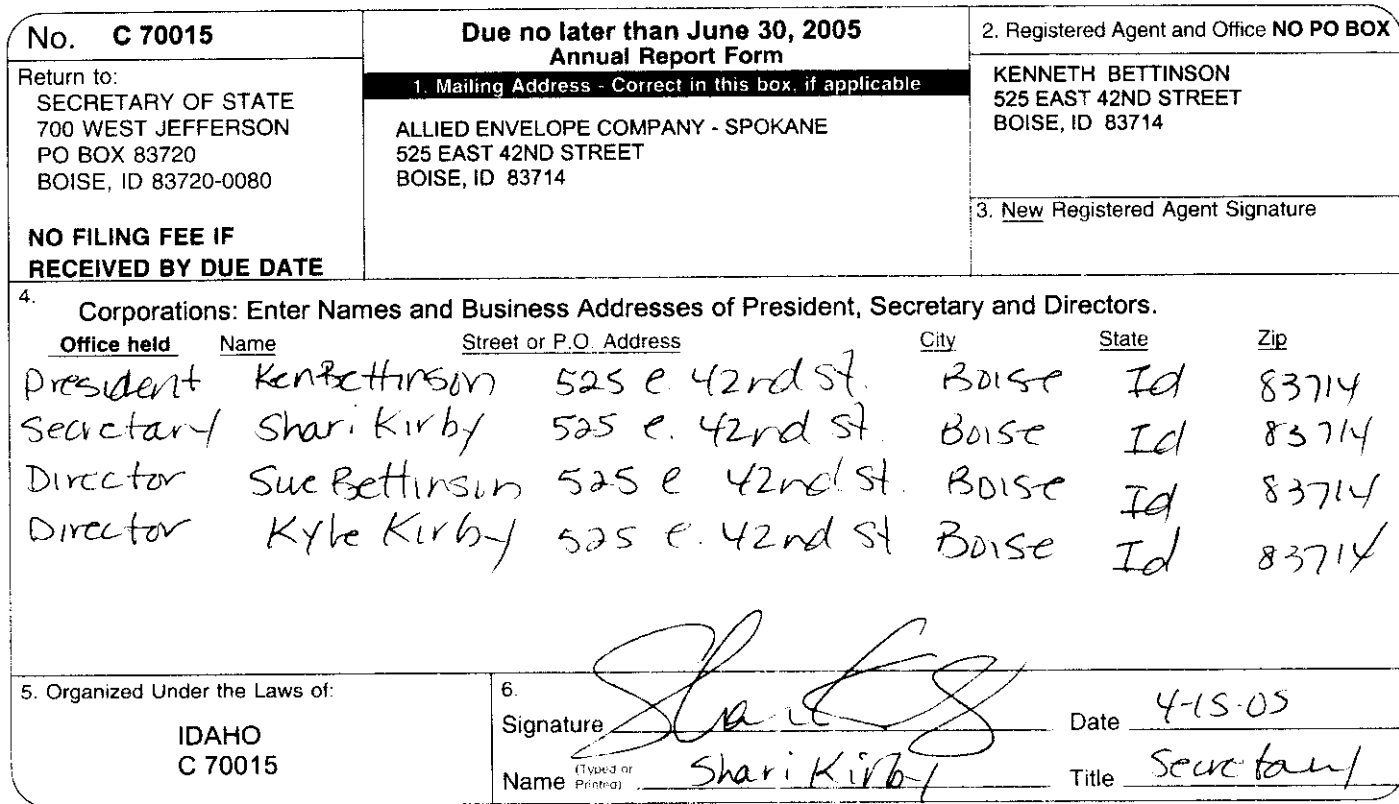 No. C 70015
Return to:
SECRETARY OF STATE
700 WEST JEFFERSON
PO BOX 83720
BOISE, ID 83720-0080
NO FILING FEE IF
RECEIVED BY DUE DATE
Due no later than June 30, 2005
Annual Report Form
1. Mailing Address - Correct in this box, if applicable
ALLIED ENVELOPE COMPANY - SPOKANE
525 EAST 42ND STREET
BOISE, ID 83714
2. Registered Agent and Office NO PO BOX
KENNETH BETTINSON
525 EAST 42ND STREET
BOISE, ID 83714
3. New Registered Agent Signature
4. Corporations: Enter Names and Business Addresses of President, Secretary and Directors.
Office held Name Street or P.O. Address City State Zip
President Ken Bettinson 525 e. 42nd st. Boise Id 83714
Secretary Shari Kirby 525 e. 42nd st. Boise Id 83714
Director Sue Bettinson 525 e 42nd st. Boise Id 83714
Director Kyle Kirby 525 e. 42nd st Boise Id 83714
5. Organized Under the Laws of:
IDAHO
C 70015
6.
Signature Shari Kirby Date 4-15-05
Name (Typed or Printed) Shari Kirby Title Secretary